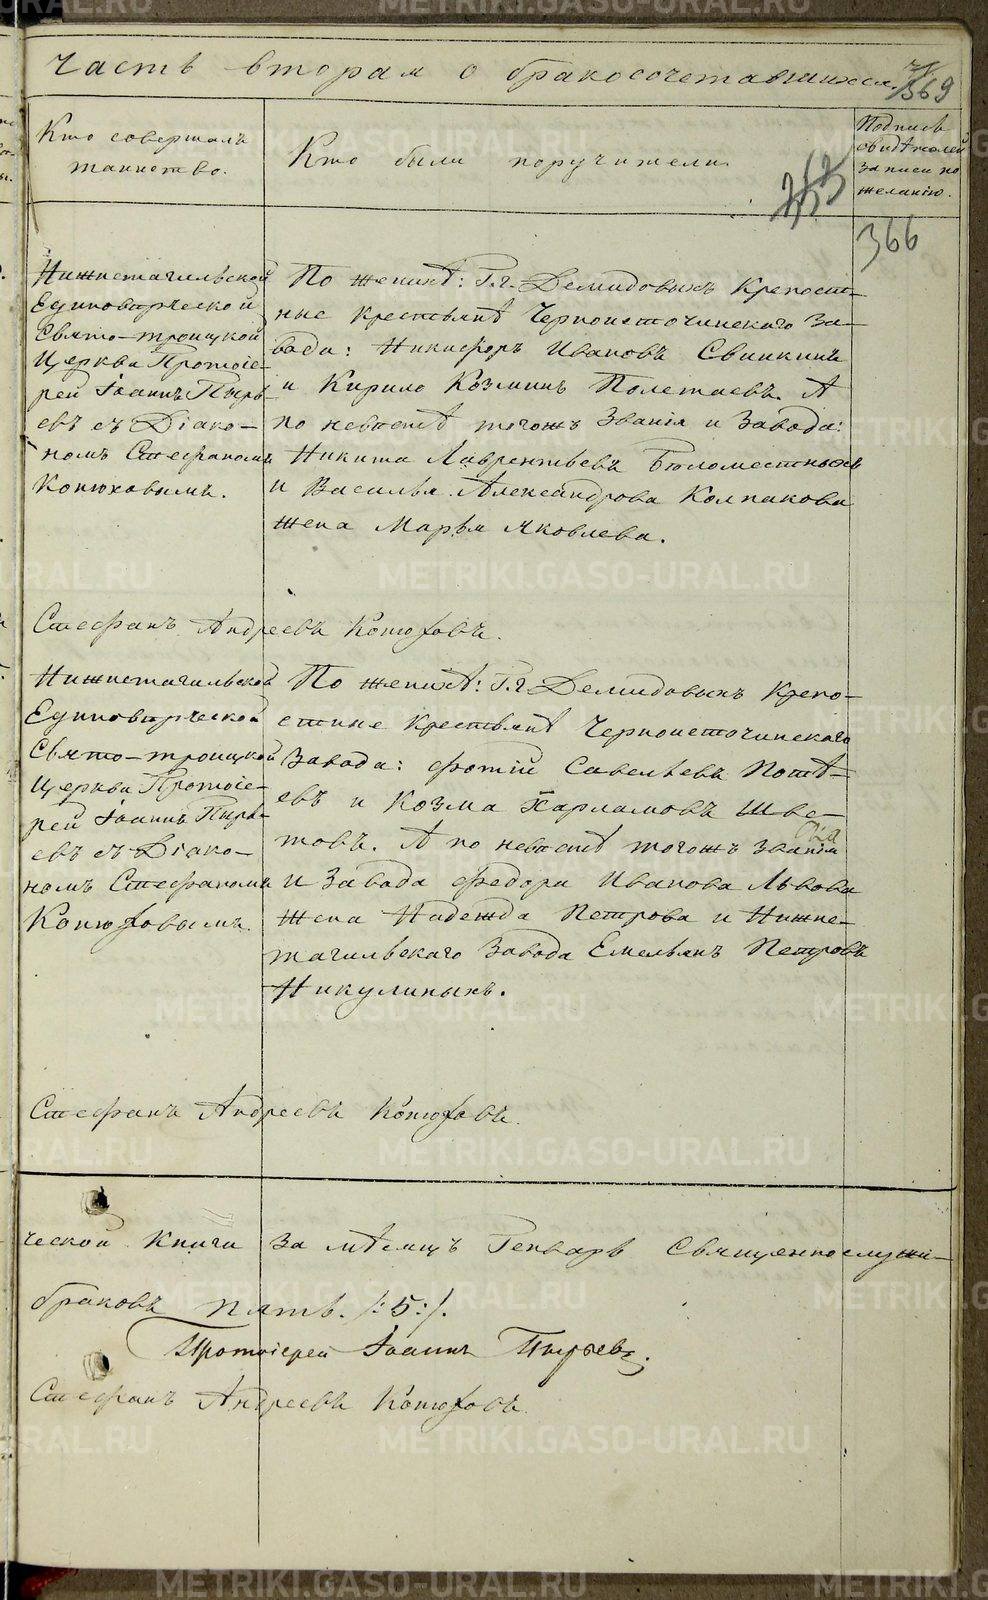 Часть вторая о бракосочетавшихся.
369
Кто совершалъ
таинство.
Кто были поручители.
Подпись
свидѣтелей
записи по
желанію.
366
Нижнетагильской
Единовѣрческой
Свято-троицкой
Церкви Протоіе-
рей Іоаннъ Пырь-
евъ съ Діако-
номъ Стефаномъ
Конюховымъ.
По женихѣ: Г.г. Демидовыхъ Крепост-
ные крестьянѣ Черноисточинскаго За-
вода: Никифоръ Ивановъ Свинкинъ
и Кирило Козминъ Полетаевъ. А
по невѣстѣ тогожъ Званія и Завода:
Никита Лаврентьевъ Бѣломестныхъ
и Василья Александрова Колпакова
жена Марья Яковлева.
Стефанъ Андреевъ Конюховъ.
Нижнетагильской
Единовѣрческой
Свято-троицкой
Церкви Протоіе-
рей Іоаннъ Пырь-
евъ съ Діако-
номъ Стефаномъ
Конюховымъ.
По женихѣ: Г.г. Демидовыхъ Крепо-
стные крестьянѣ Черноисточинскаго
Завода: Фотій Савельевъ Потѣ-
евъ и Козма Харламовъ Шве-
товъ. А по невѣстѣ тогожъ званія
и Завода Федора Иванова Львова
жена Надежда Петрова и Нижне-
тагильскаго Завода Емельянъ Петровъ
Никулиныхъ.
Стефанъ Андреевъ Конюховъ.
ческой Книги За мѣсяцъ Генварь Священнослужи-
браковъ пять. /:5:/.
Протоіерей Іоаннъ Пырьевъ.
Стефанъ Андреевъ Конюховъ.
METRIKI.GASO-URAL.RU